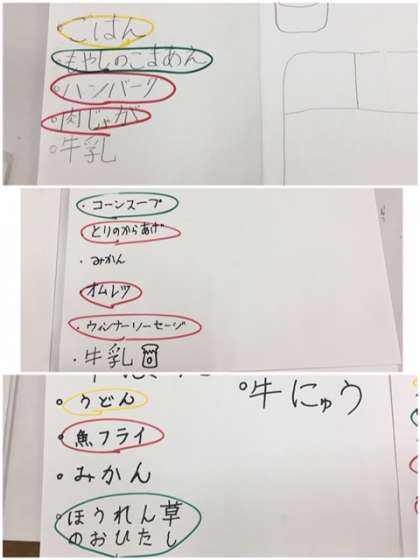 ごはん
もやしのごまあえ
ハンバーグ
肉じゃが
牛乳
コーンスープ
とりのからあげ
みかん
オムレツ
ウィンナーソーセージ
牛乳
うどん
牛にゅう
魚フライ
みかん
ほうれん草
のおひたし